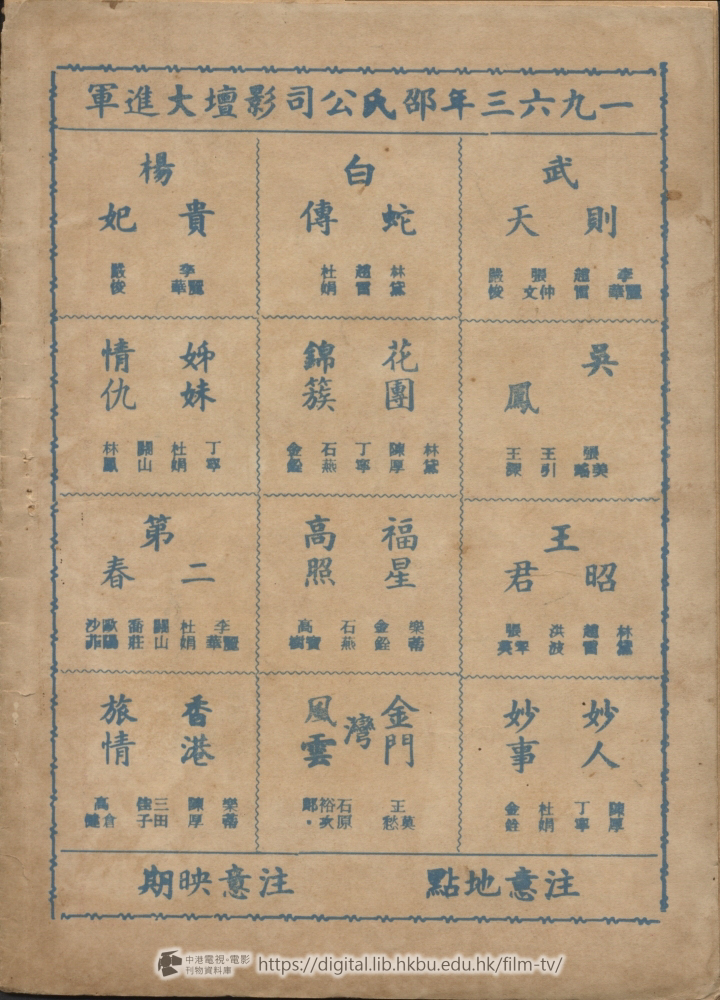 一九六三年邵氏公司影壇大進軍
武則天
李麗華
趙雷
張仲文
嚴俊
白蛇傳
林黛
趙雷
杜娟
楊貴妃
李麗華
嚴俊
吳鳳
張美瑤
王引
王深
花團錦簇
林黛
陳厚
丁寧
石燕
金銓
姊妹情仇
丁寧
杜娟
關山
林鳳
王昭君
林黛
趙雷
洪波
張英宰
福星高照
樂蒂
金銓
石燕
高寶樹
第二春
李麗華
杜娟
關山
喬莊
歐陽沙菲
妙人妙事
陳厚
丁寧
杜娟
金銓
金門灣風雲
王莫愁
石原裕次郎。
香港旅情
樂蒂
陳厚
三田佳子
高倉健
注意地點
注意映期
中港電視-電影
刊物資料庫
https://digital.lib.hkbu.edu.hk/film-tv/